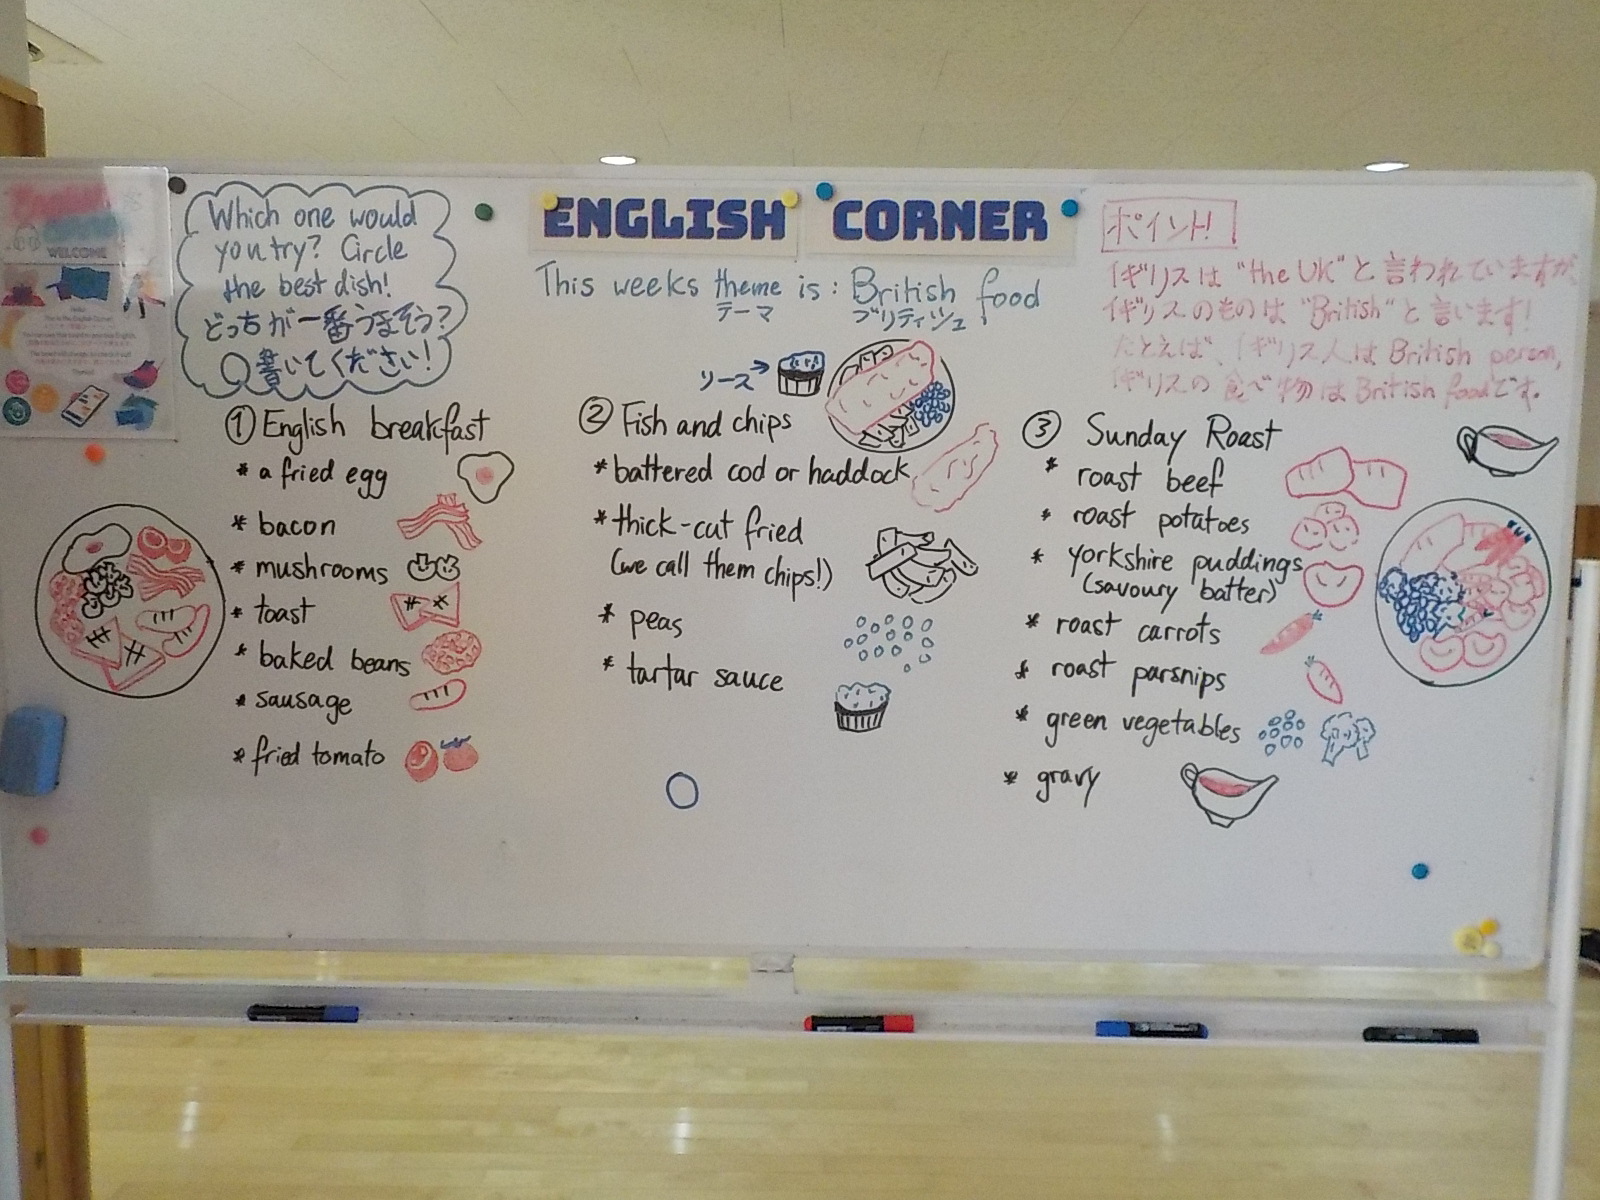 WELCOME
Which one would
you try? Circle
the best dish!
どっちが一番うまそう?
○書いてください!
ENGLISH CORNER
This weeks theme is: British food
テーマ
ブリティシュ
ソース→
ポイント!
イギリスは "the UK" と言われていますが、
イギリスのものは "British" と言います!
たとえば、イギリス人は British person,
イギリスの食べ物は British food です。
① English breakfast
* a fried egg
* bacon
* mushrooms
* toast
* baked beans
* sausage
* fried tomato
② Fish and chips
* battered cod or haddock
* thick-cut fried
(we call them chips!)
* peas
* tartar sauce
③ Sunday Roast
* roast beef
* roast potatoes
* yorkshire puddings
(savoury batter)
* roast carrots
* roast parsnips
* green vegetables
* gravy